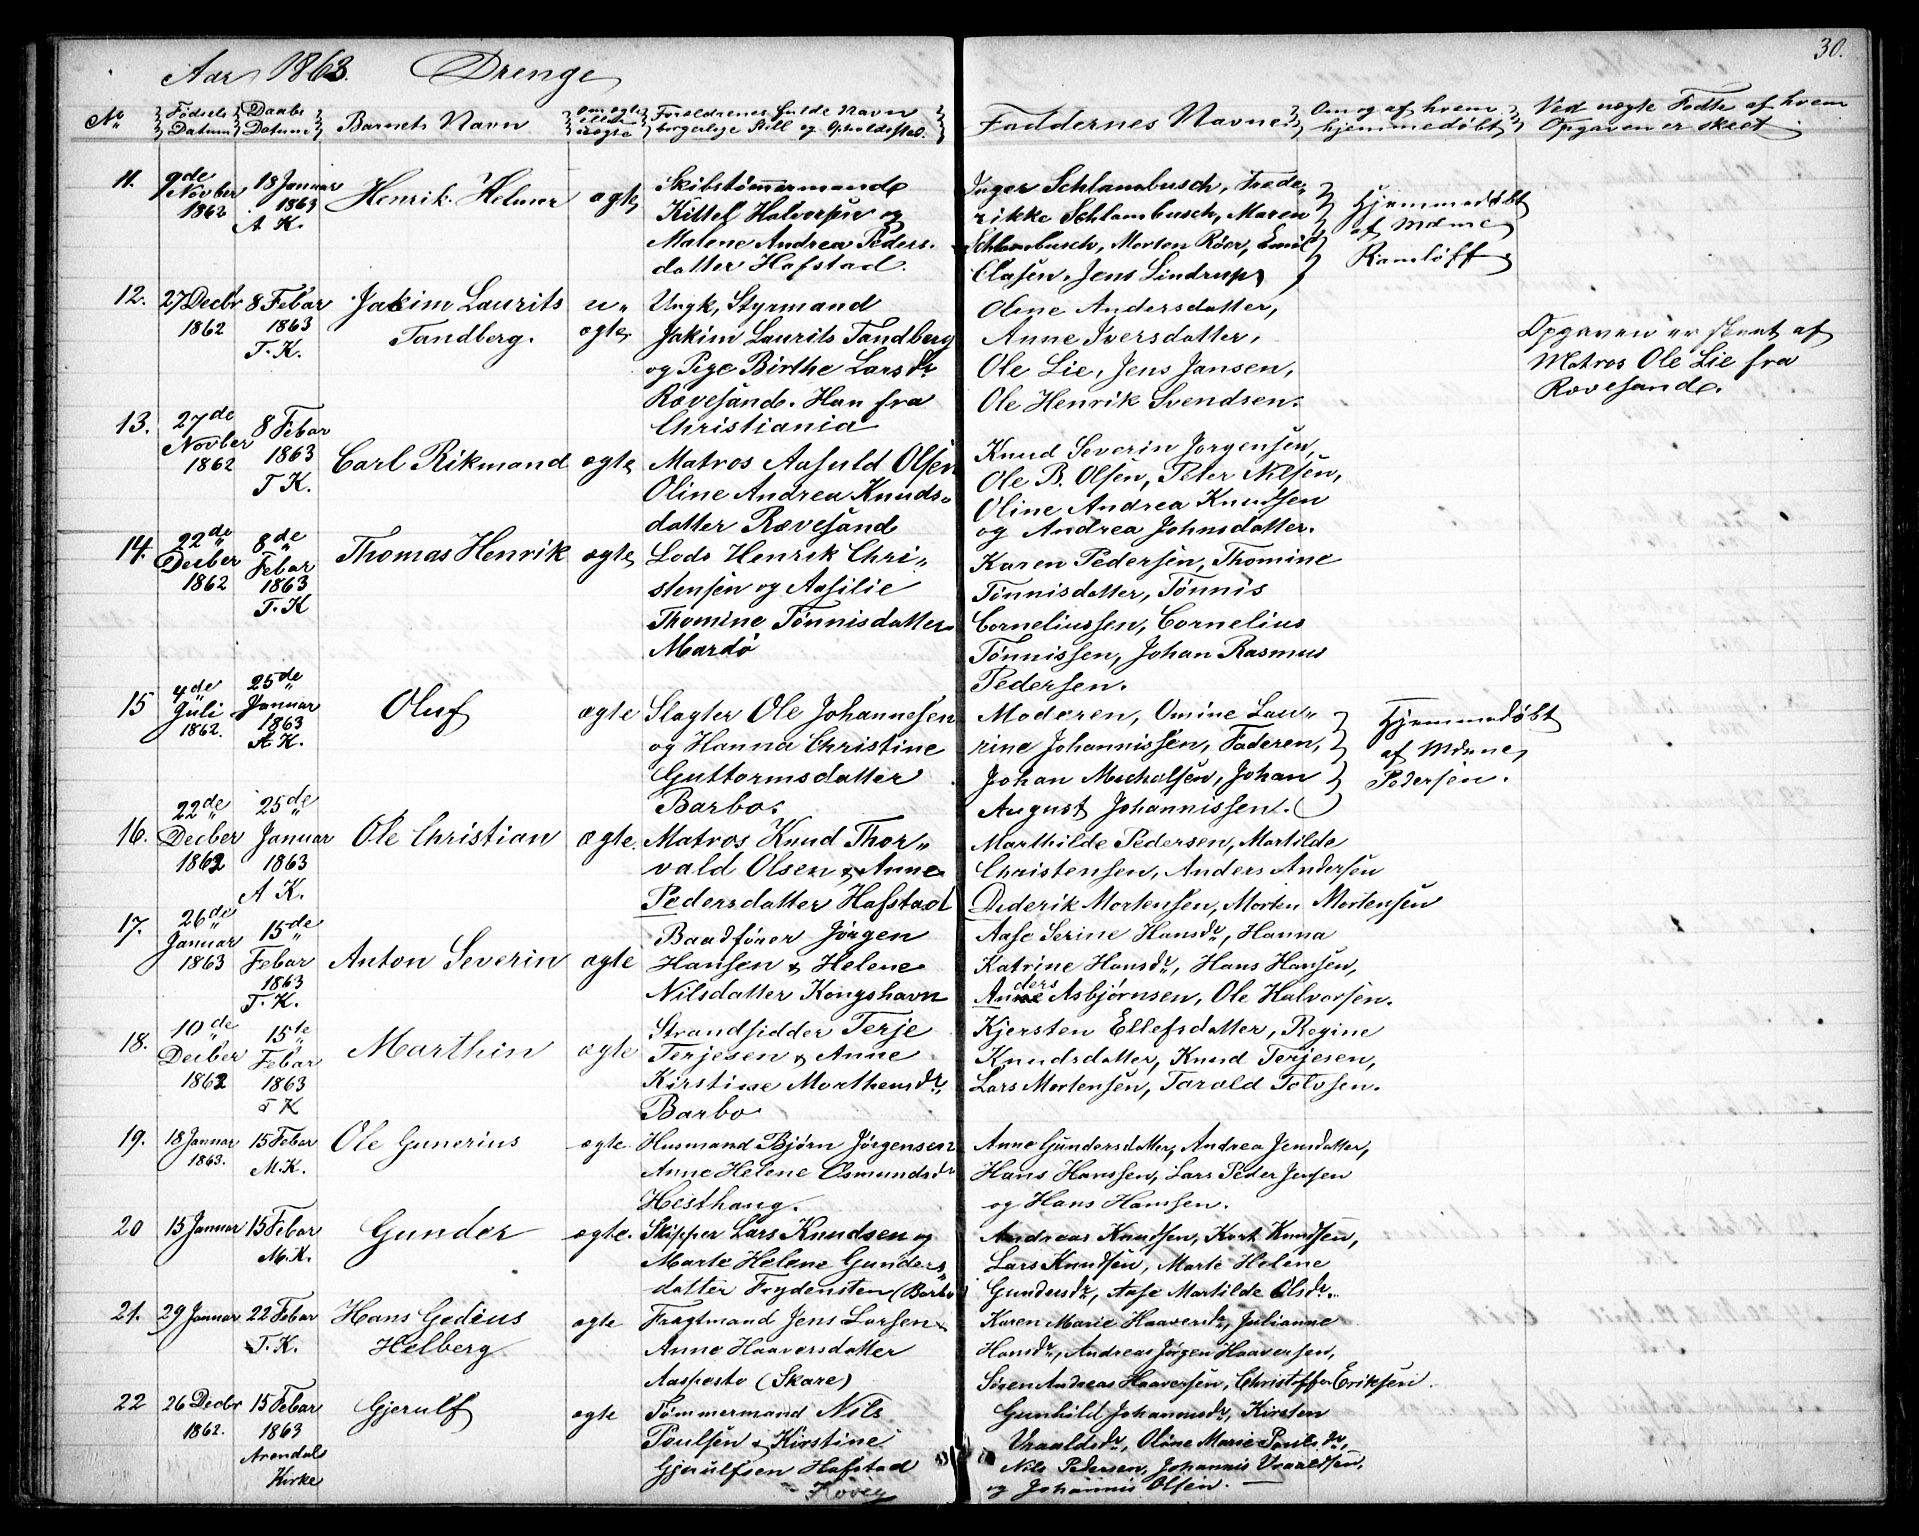 30.
Aar 1863. Drenge
No Fødsels Datum Daabs Datum Barnets Navn Om ægte eller uægte Forældrenes fulde Navn borgerlige Still. og Opholdssted.
Faddernes Navne Om og af hvem hjemmedøbt Ved uægte Fødte af hvem Opgaven er skeet
11. 9de Novber 1862 18 Januar 1863 A. K. Henrik Helmer ægte
Skibstømmermand
Kittel Halvorsen og
Malene Andrea Peders.
datter Hafstad.
Inger Schlambusch, Frede,
rikke Schlambusch, Maren
Schlambusch, Morten Röer, Emil
Clasen, Jens Lindrup
Hjemmedøbt
af Mdme
Ramløff
12. 27 Decbr 1862 8 Febar 1863 T. K. Jakim Laurits Tandberg. u„ ægte
Ungk, Styrmand
Jakim Laurits Tandberg
og Pige Birthe Larsdr
Rævesand. Han fra
Christiania
Oline Andersdatter,
Anne Iversdatter,
Ole Lie, Jens Jansen,
Ole Henrik Svendsen.
Opgaven er skeet af
Matros Ole Lie fra
Rævesand.
13. 27de Novber 1862 8 Febar 1863 T K. Carl Rikmand ægte
Matros Aasuld Olsen
Oline Andrea Knuds„
datter Rævesand
Knud Severin Jorgensen,
Ole B. Olsen, Peter Nilsen,
Oline Andrea Knudsen
og Andrea Johnsdatter.
14. 22de Decber 1862 8de Febar 1863 T. K Thomas Henrik ægte
Lods Henrik Chri„
stensen og Aasilie
Thomine Tönnisdatter
Mardö
Karen Pedersen, Thomine
Tönnisdatter, Tönnis
Corneliussen, Cornelius
Tönnissen, Johan Rasmus
Pedersen.
15 4de Juli 1862. 25de Januar 1863 A K. Oluf ægte
Slagter Ole Johannesen
og Hanna Christine
Guttormsdatter
Barbo.
Moderen, Omine Lau„
rine Johannissen, Faderen,
Johan Michalsen, Johan
August Johannissen.
Hjemmedøbt
af Mdme,
Pedersen.
16. 22de Decber 1862 25de Januar 1863 A K. Ole Christian ægte.
Matros Knud Thor„
vald Olsen & Anne
Pedersdatter Hafstad
Marthilde Pedersen, Martilde
Christensen, Anders Andersen
Diderik Mortensen, Morten Mortensen
17. 26de Januar 1863 15de Febar 1863 T. K. Anton Severin ægte
Baadfører Jørgen
Hansen & Helene
Nilsdatter Kongshavn
Aase Serine Hansdr, Hanna
Katrine Hansdr, Hans Hansen,
Anders Asbjørnsen, Ole Halvorsen.
18. 10de Decber 1862 15te Febar 1863 T K Marthin ægte
Strandsidder Terje
Terjesen & Anne
Kirstine Morthensdr
Barbo
Kjersten Ellefsdatter, Regine
Knudsdatter, Knud Terjesen,
Lars Mortensen, Tarald Tolvsen.
19. 18 Januar 1863. 15 Febar M. K. Ole Gunerius ægte.
Husmand Bjørn Jörgensen
Anne Helene Osmundsdr
Hesthaug.
Anne Gundersdatter, Andrea Jensdatter,
Hans Hanssen, Lars Peder Jensen
og Hans Hansen.
20 15 Januar 15 Febar M. K. Gunder ægte.
Skipper Lars Knudsen og
Marte Helene Gunders„
datter Frydensten (Barbo)
Andreas Knudsen, Kort Knudsen,
Lars Knudsen, Marte Helene
Gundersdr, Aase Martilde Olsdr.
21. 29 Januar 22 Febar T. K. Hans Gedius Helberg ægte
Fragtmand Jens Larsen &
Anne Haaversdatter
Aasposto (Skare)
Karen Marie Haaversdr, Julianne
Hansdr, Andreas Jörgen Haaversen,
Sören Andreas Haaversen, Christoffer Eriksen.
22 26 Decbr 1862. 15 Febar 1863 Arendals Kirke Gjerulf ægte
Tömmermand Nils
Poulsen & Kirstine
Gjerulfsen Hafstad
Gunhild Johannisdr, Kirsten
Vraaldsdr, Oline Marie Poulsdr,
Nils Pedersen, Johannis Vraaldsen,
og Johannis Olsen.